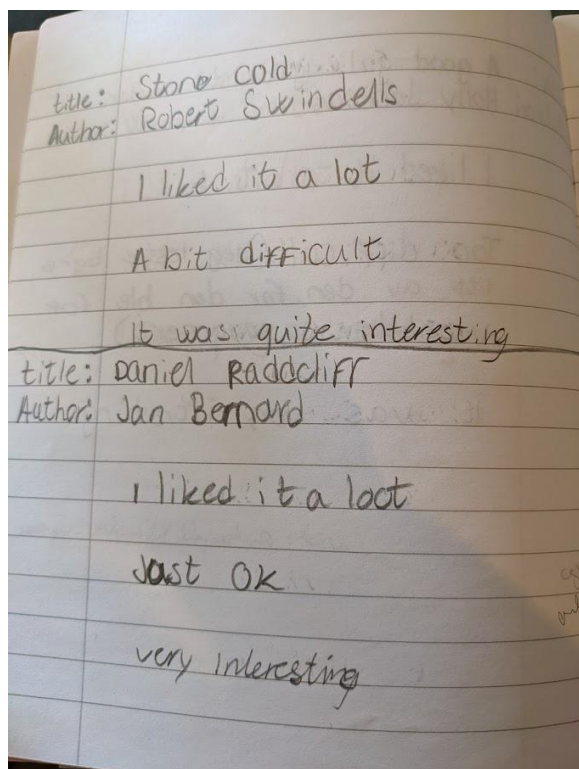 title: Stone cold
Author: Robert Swindells
I liked it a lot
A bit difficult
It was quite interesting
title: Daniel Raddcliff
Author: Jan Bernard
I liked it a loot
Jast OK
very interesting